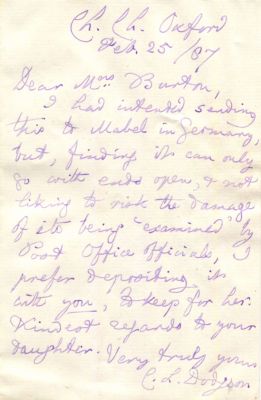 Ch. Ch. Oxford
Feb. 25/87
Dear Mrs Burton,
I had intended sending
this to Mabel in Germany,
but, finding it can only
go with ends open, & not
liking to risk the damage
of its being "examined" by
Post Office officials, I
prefer depositing it
with you, to keep for her.
Kindest regards to your
daughter. Very truly yours
C. L. Dodgson